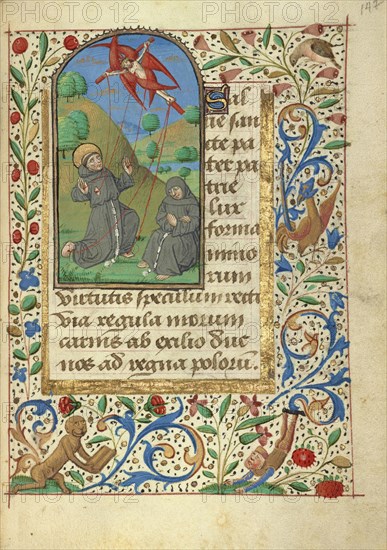 147
Sal
ue san
cte pa
ter pa
trie
lux
forma
mino
rum
virtutis speculum recti
via regula morum
carnis ab exilio duc
nos ad regna polorum